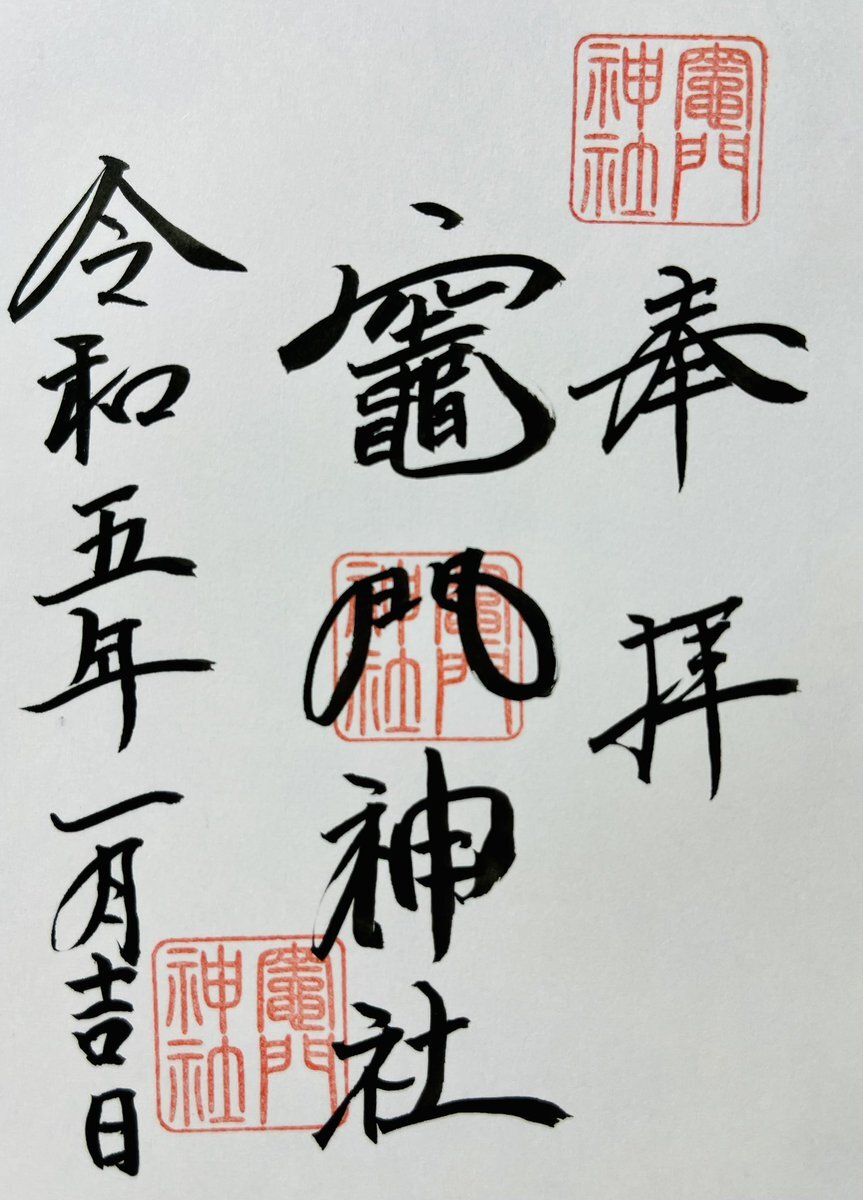 奉拝
竈門神社
令和五年一月吉日
竈門神社
竈門神社
竈門神社